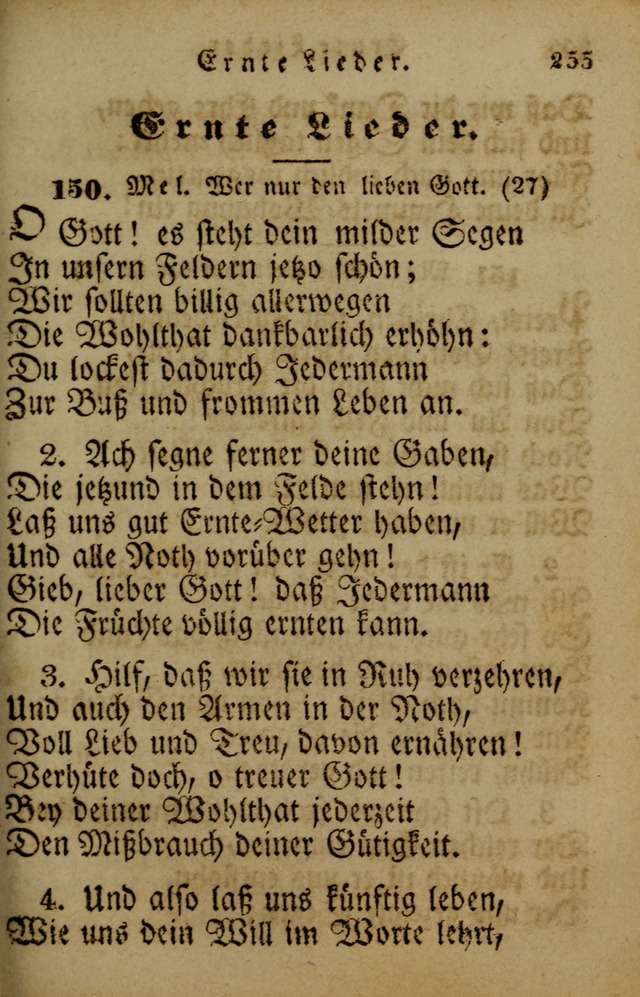 Ernte Lieder. 255
Ernte Lieder.
150. Mel. Wer nur den lieben Gott. (27)
O Gott! es steht dein milder Segen
In unsern Feldern jetzo schön;
Wir sollten billig allerwegen
Die Wohlthat dankbarlich erhöhn:
Du lockest dadurch Jedermann
Zur Buß und frommen Leben an.
2. Ach segne ferner deine Gaben,
Die jetzund in dem Felde stehn!
Laß uns gut Ernte-Wetter haben,
Und alle Noth vorüber gehn!
Gieb, lieber Gott! daß Jedermann
Die Früchte völlig ernten kann.
3. Hilf, daß wir sie in Ruh verzehren,
Und auch den Armen in der Noth,
Voll Lieb und Treu, davon ernähren!
Verhüte doch, o treuer Gott!
Bey deiner Wohlthat jederzeit
Den Mißbrauch deiner Gütigkeit.
4. Und also laß uns künftig leben,
Wie uns dein Will im Worte lehrt,